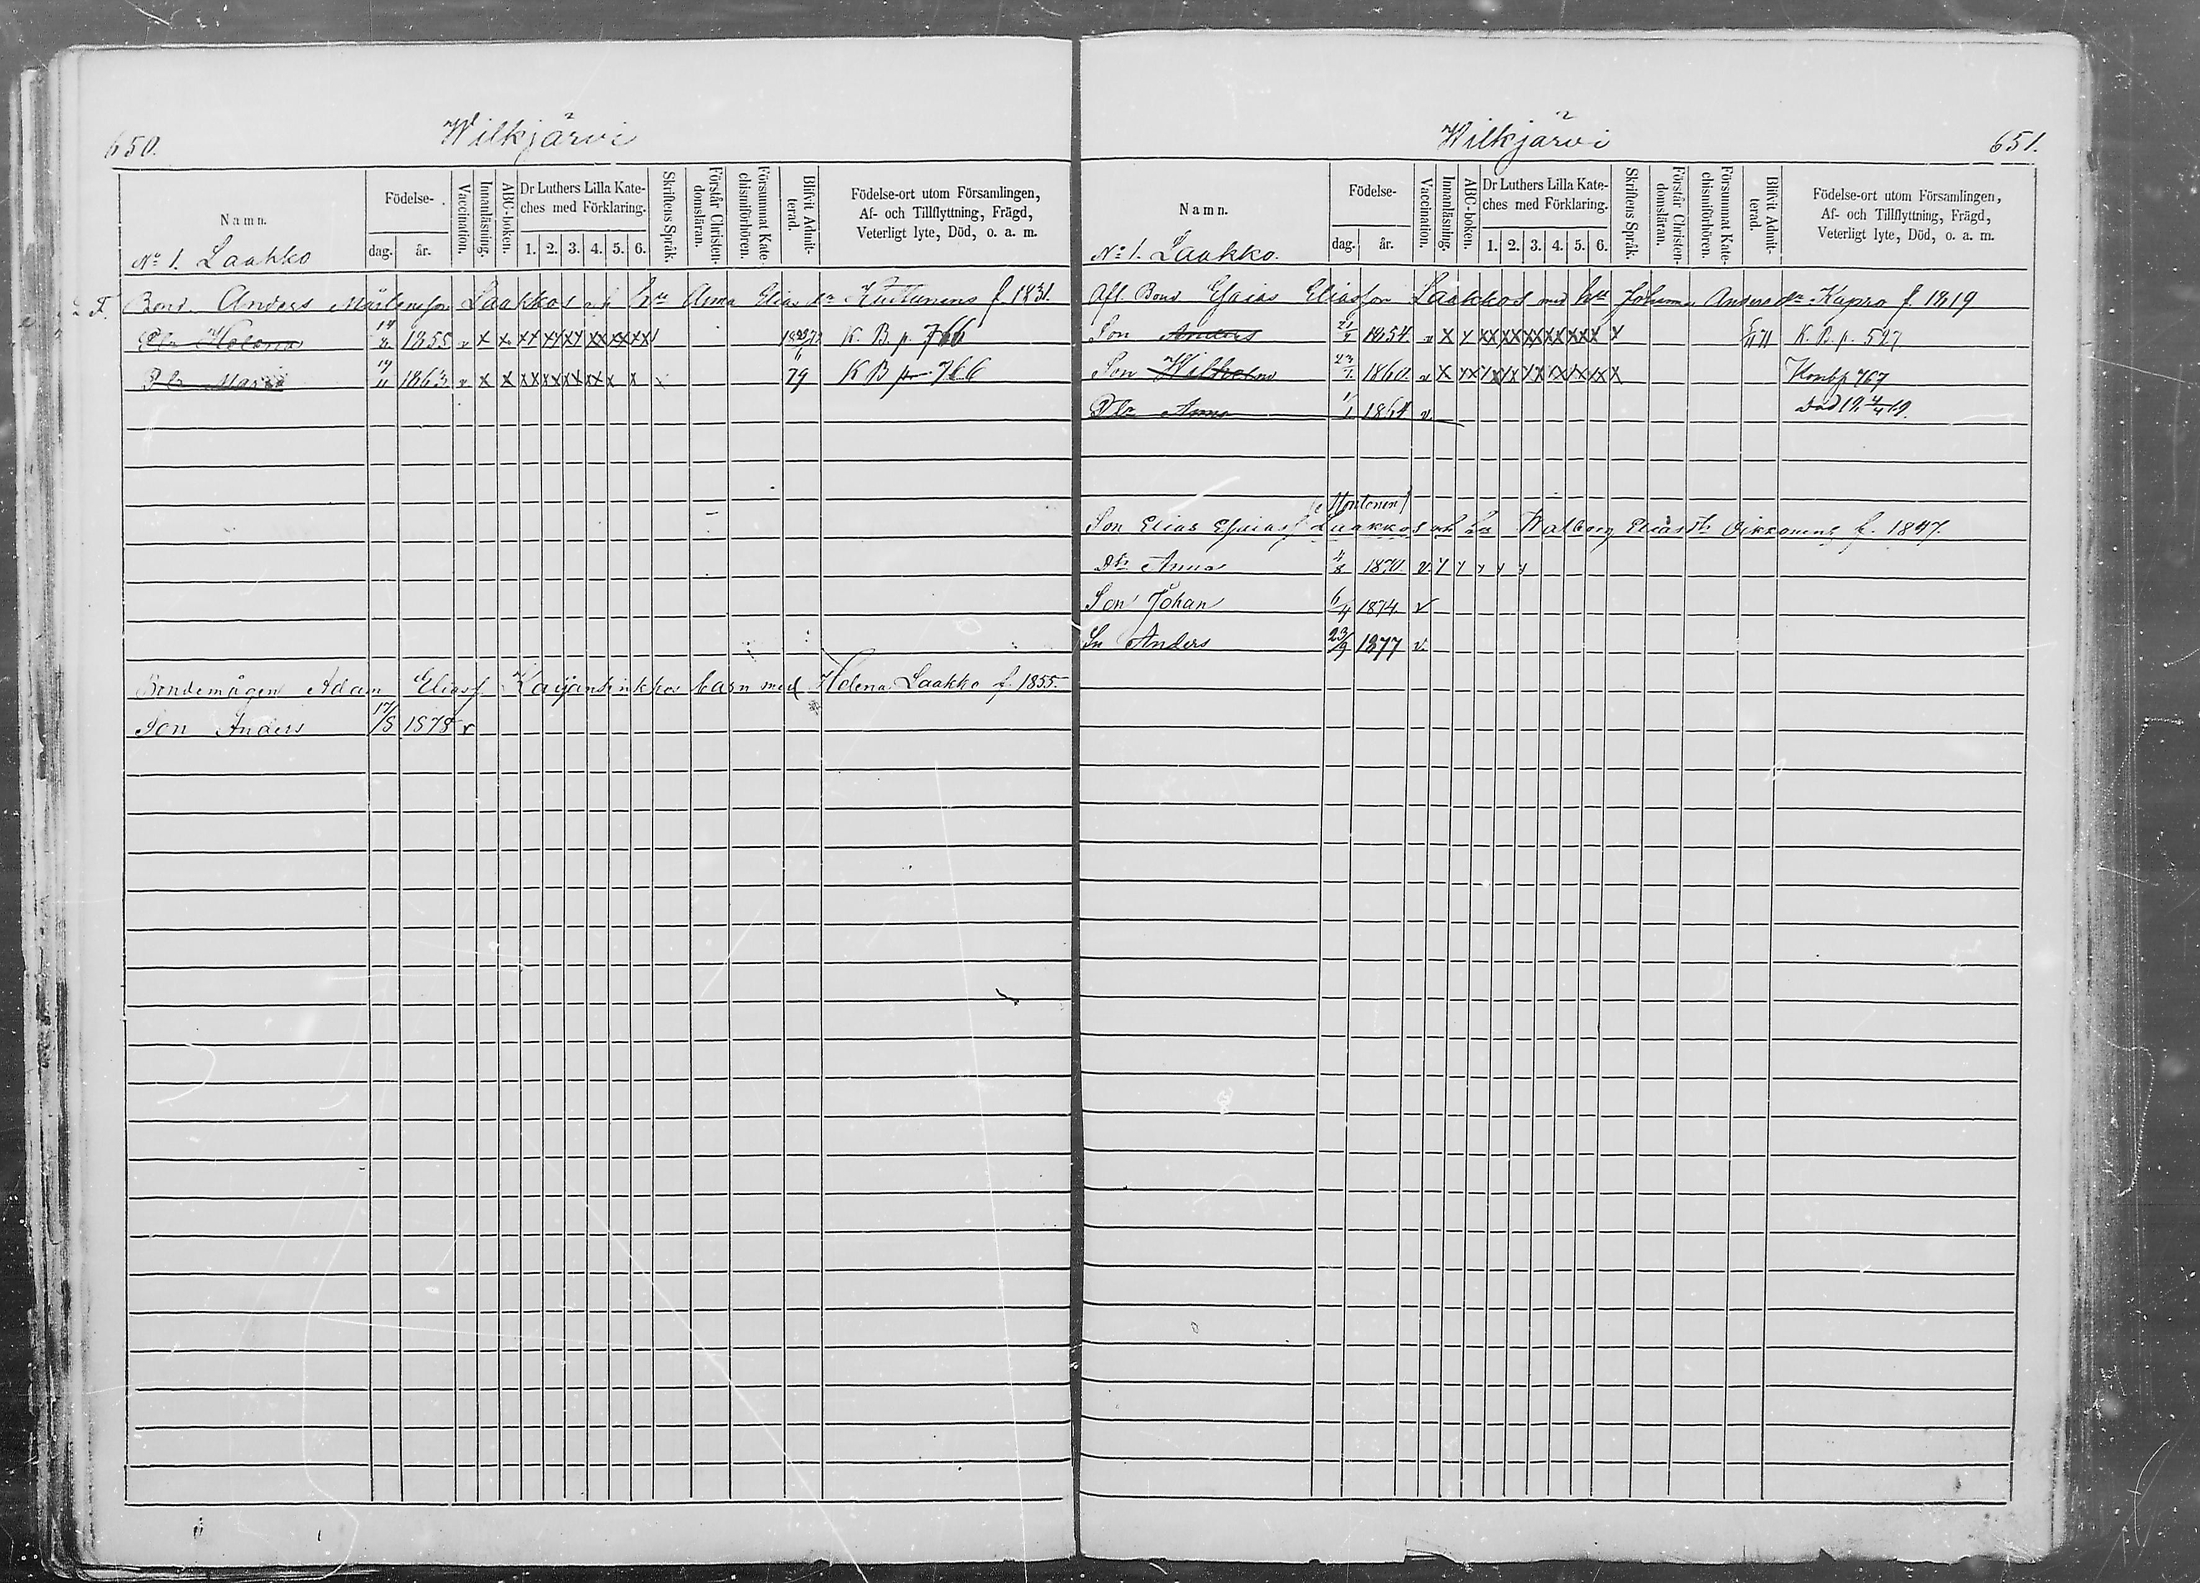 650.
Wilkjärvi
Namn.
Födelse-
dag.
år.
Vaccination.
Innanläsning.
ABC-boken.
Dr Luthers Lilla Kate-
ches med Förklaring.
1. 2. 3. 4. 5. 6.
Skriftens Språk.
Förstår Christen-
domsläran.
Försummat Kate-
chismiförhören.
Blifvit Admit-
terad.
Födelse-ort utom Församlingen,
Af- och Tillflyttning, Frägd,
Veterligt lyte, Död, o. a. m.
No 1. Laakko
Bond. Anders Mårtensson Laakkos Anna Elias dr f. 1831.
Dtr Helena 14 1855 v x x xx xx xx xx xx xx K. B. p. 766
Dtr Maria 19/11 1863 v x x xx xx xx xx x x 79 K B p. 766
Bondemågen Adam Eliasf barn med Helena Laakko f. 1855.
Son Anders 17/8 1878 v
Wilkjärvi
651.
Namn.
Födelse-
dag.
år.
Vaccination.
Innanläsning.
ABC-boken.
Dr Luthers Lilla Kate-
ches med Förklaring.
1. 2. 3. 4. 5. 6.
Skriftens Språk.
Förstår Christen-
domsläran.
Försummat Kate-
chismiförhören.
Blifvit Admit-
terad.
Födelse-ort utom Församlingen,
Af- och Tillflyttning, Frägd,
Veterligt lyte, Död, o. a. m.
No 1. Laakko.
Afl. Bond Esaias Eliasson Laakkos med Johanna Anders dr Kupro f. 1819
Son Anders 1854 v x x xx xx xx xx xx xx x K. B. p. 527
Son Wilhelm 1860 v x xx x Konbp 767
Dtr Anna 1/1 1864 v Död
Montonen
Son Elias Esaiasf Laakkos Walborg Elias dr Oikkonens f. 1847.
Dtr Anna 4/8 1870. v.
Son Johan 6/4 1874. v
Sn Anders 23/9 1877 v.